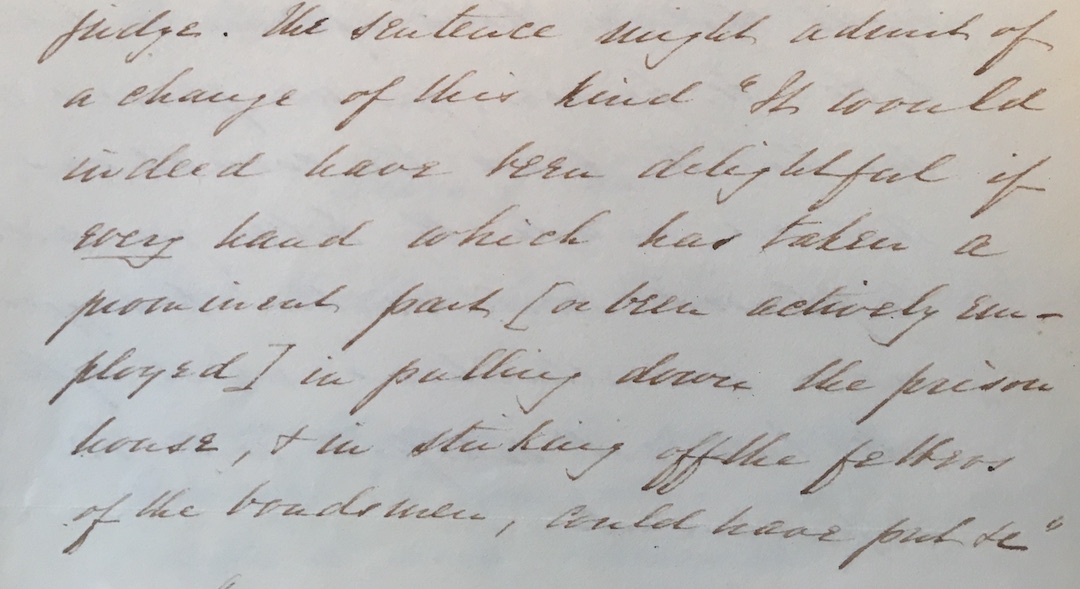 judge. The sentence might admit of
a change of this kind "It would
indeed have been delightful if
every hand which has taken a
prominent part [or been actively em-
ployed] in pulling down the prison
house, & in striking off the fetters
of the bondsmen, could have put &c"